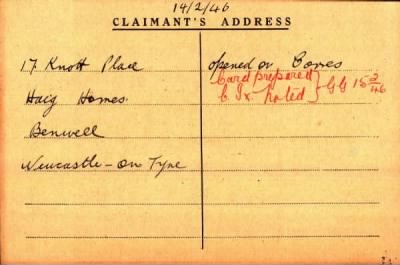 14/2/46
CLAIMANT'S ADDRESS
17 Knott Place
Haig Homes.
Benwell
Newcastle-on Tyne
opened on
Card prepared
C. Ix. noted } GG 15 2/46